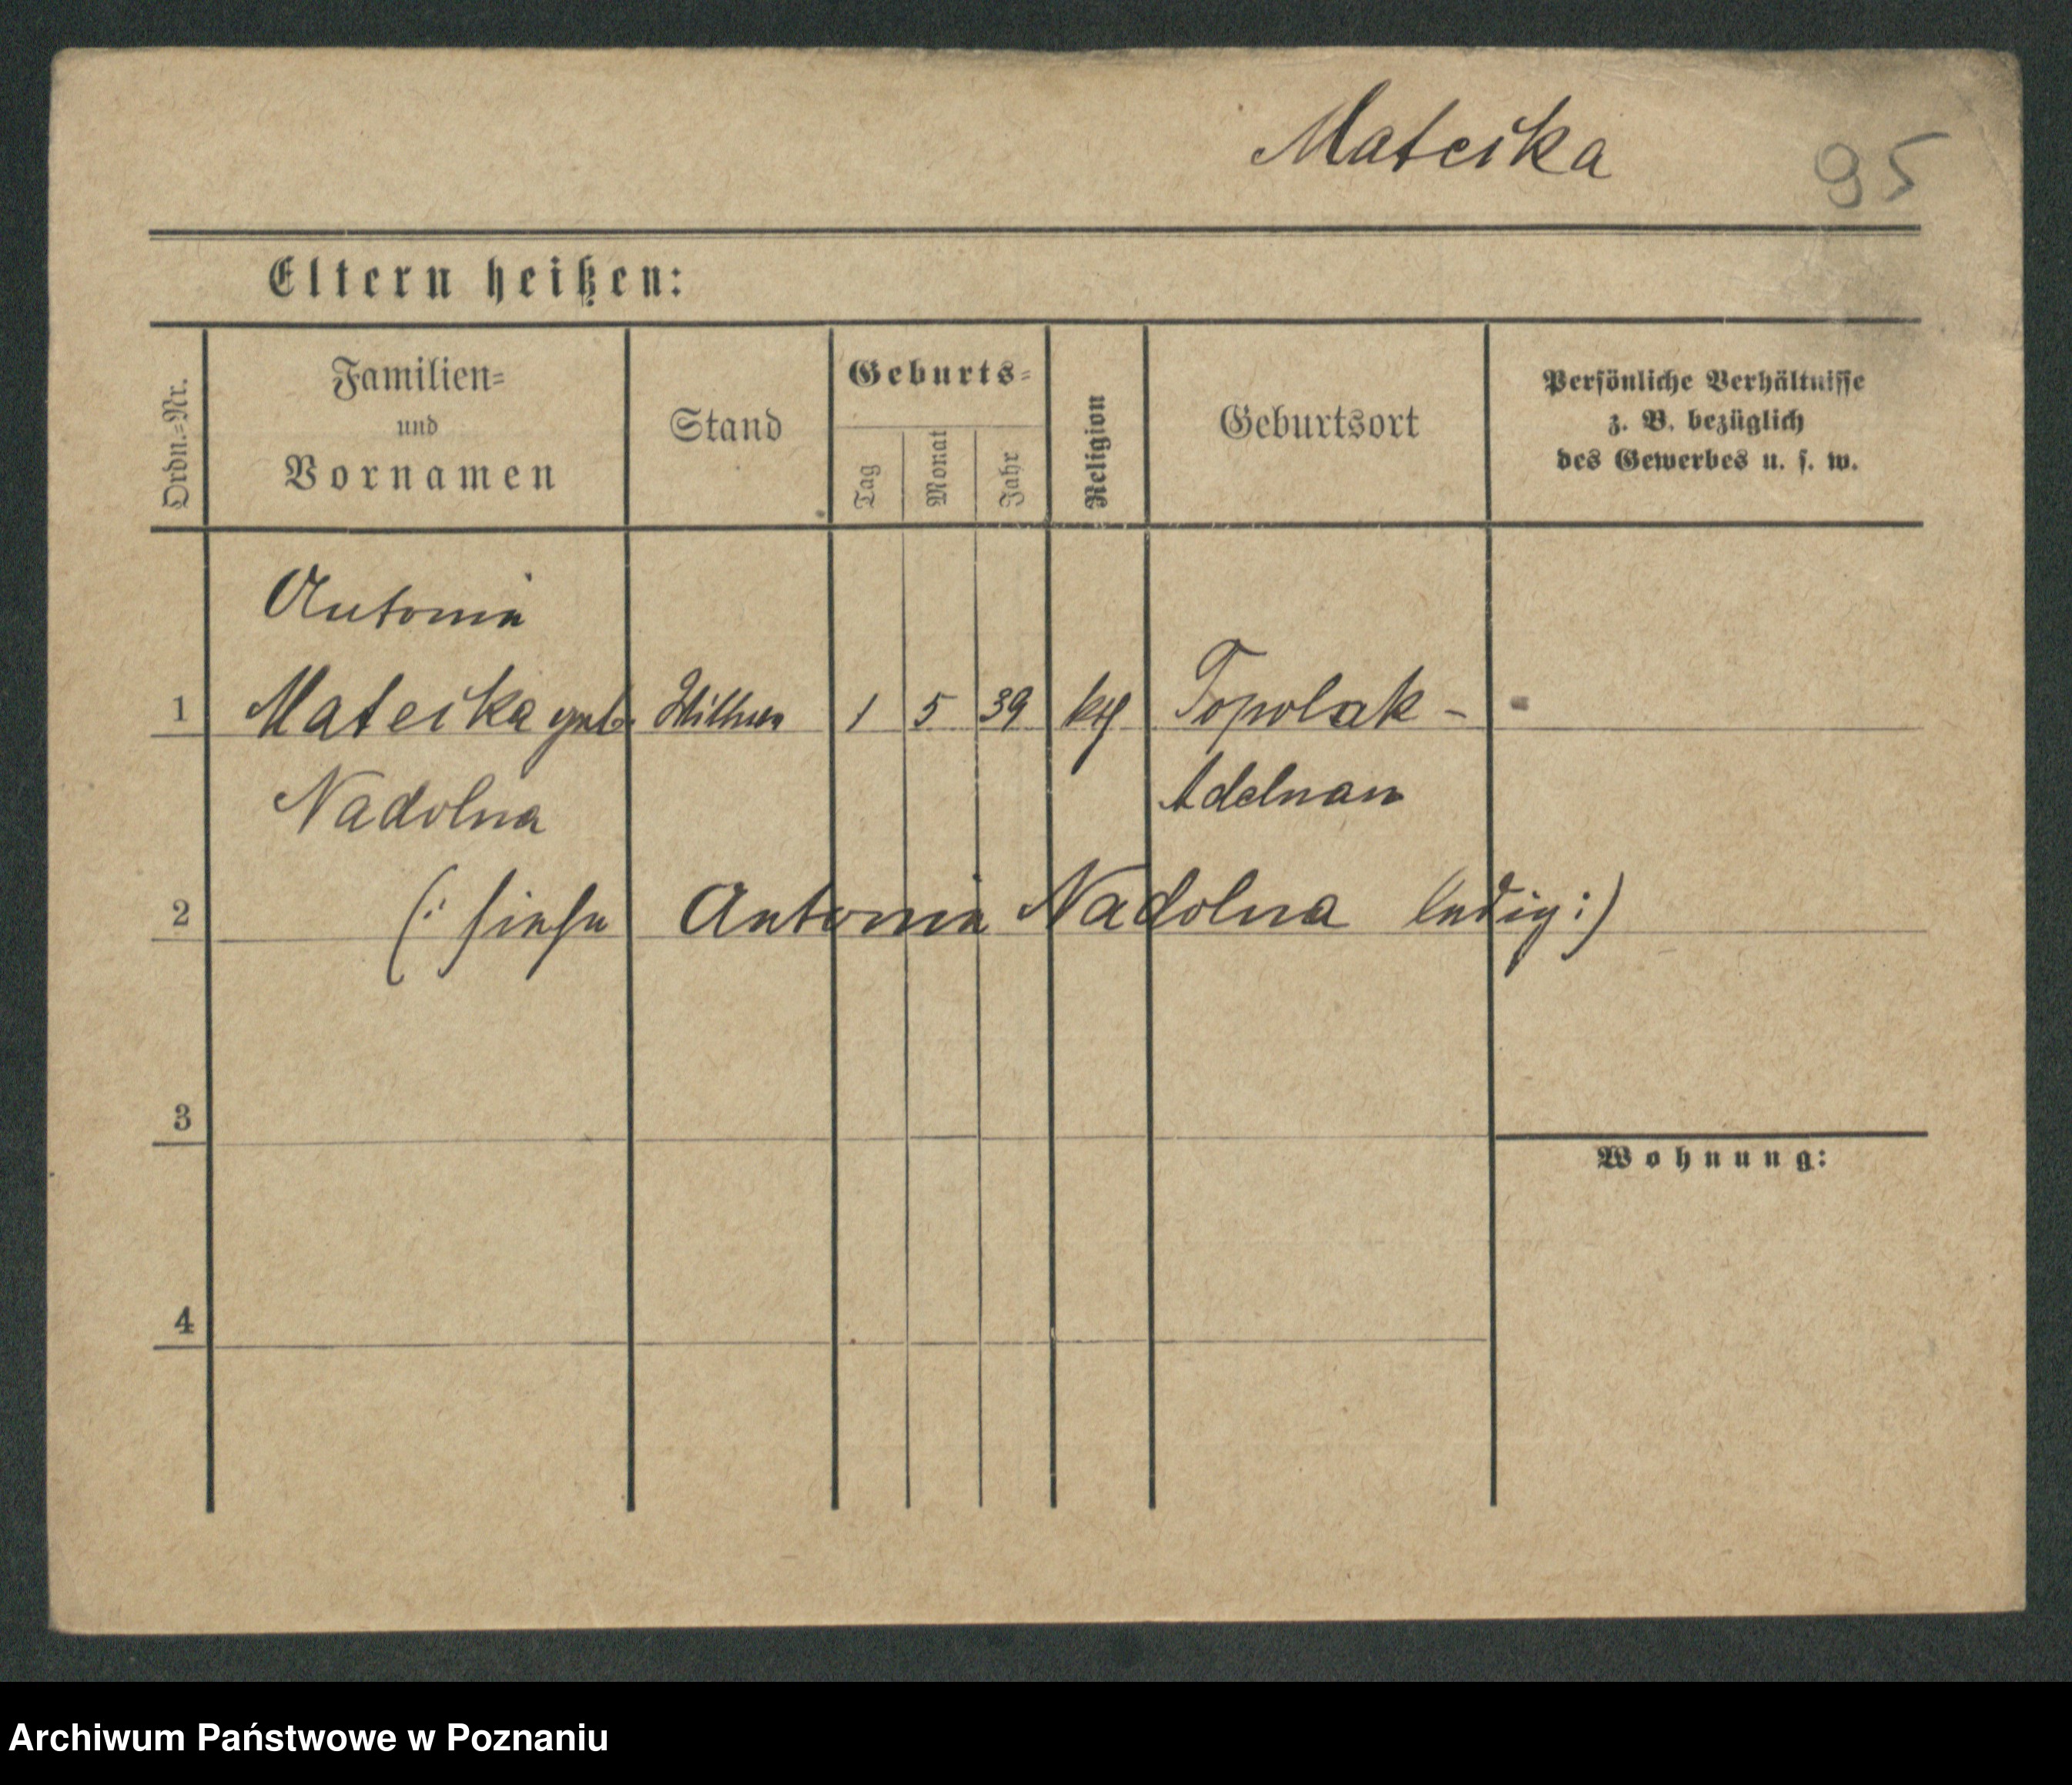 Mateika
95
Eltern heißen:
Ordn.-Nr.
Familien-
und
Vornamen
Stand
Geburts-
Tag
Monat
Jahr
Religion
Geburtsort
Persönliche Verhältnisse
z. B. bezüglich
des Gewerbes u. s. w.
Antonia
1 Mateika geb. Wittwe 1 5 39 kth Topolak -
Nadolna Adelnau
2 (: siehe Antonia Nadolna ledig :)
3
Wohnung:
4
Archiwum Państwowe w Poznaniu